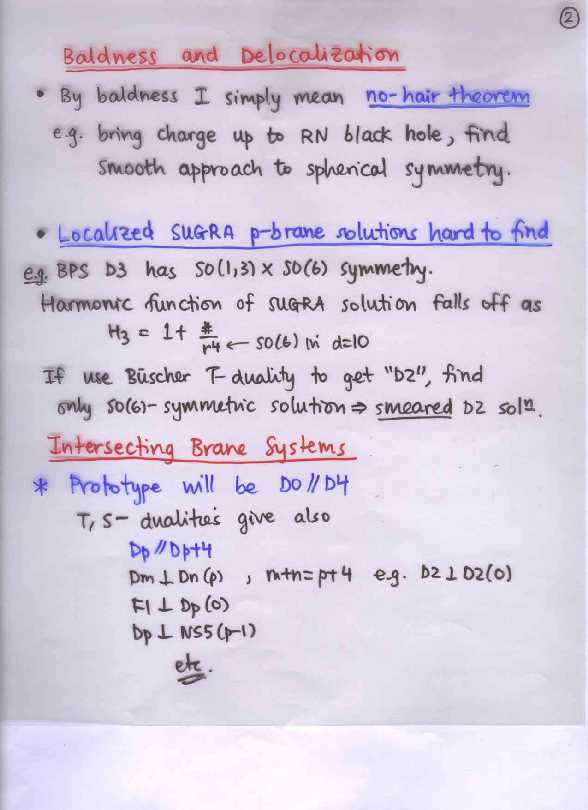 2
Baldness and Delocalization
• By baldness I simply mean no-hair theorem
e.g. bring charge up to RN black hole, find
smooth approach to spherical symmetry.
• Localized SUGRA p-brane solutions hard to find
e.g. BPS D3 has SO(1,3) × SO(6) symmetry.
Harmonic function of SUGRA solution falls off as
H₃ = 1 + #/r⁴ ← SO(6) in d=10
If use Büscher T-duality to get "D2", find
only SO(6)-symmetric solution ⇒ smeared D2 solⁿ.
Intersecting Brane Systems
* Prototype will be D0 // D4
T, S- dualities give also
Dp // Dp+4
Dm ⊥ Dn (p) , m+n=p+4 e.g. D2 ⊥ D2(0)
F1 ⊥ Dp (0)
Dp ⊥ NS5 (p-1)
etc.